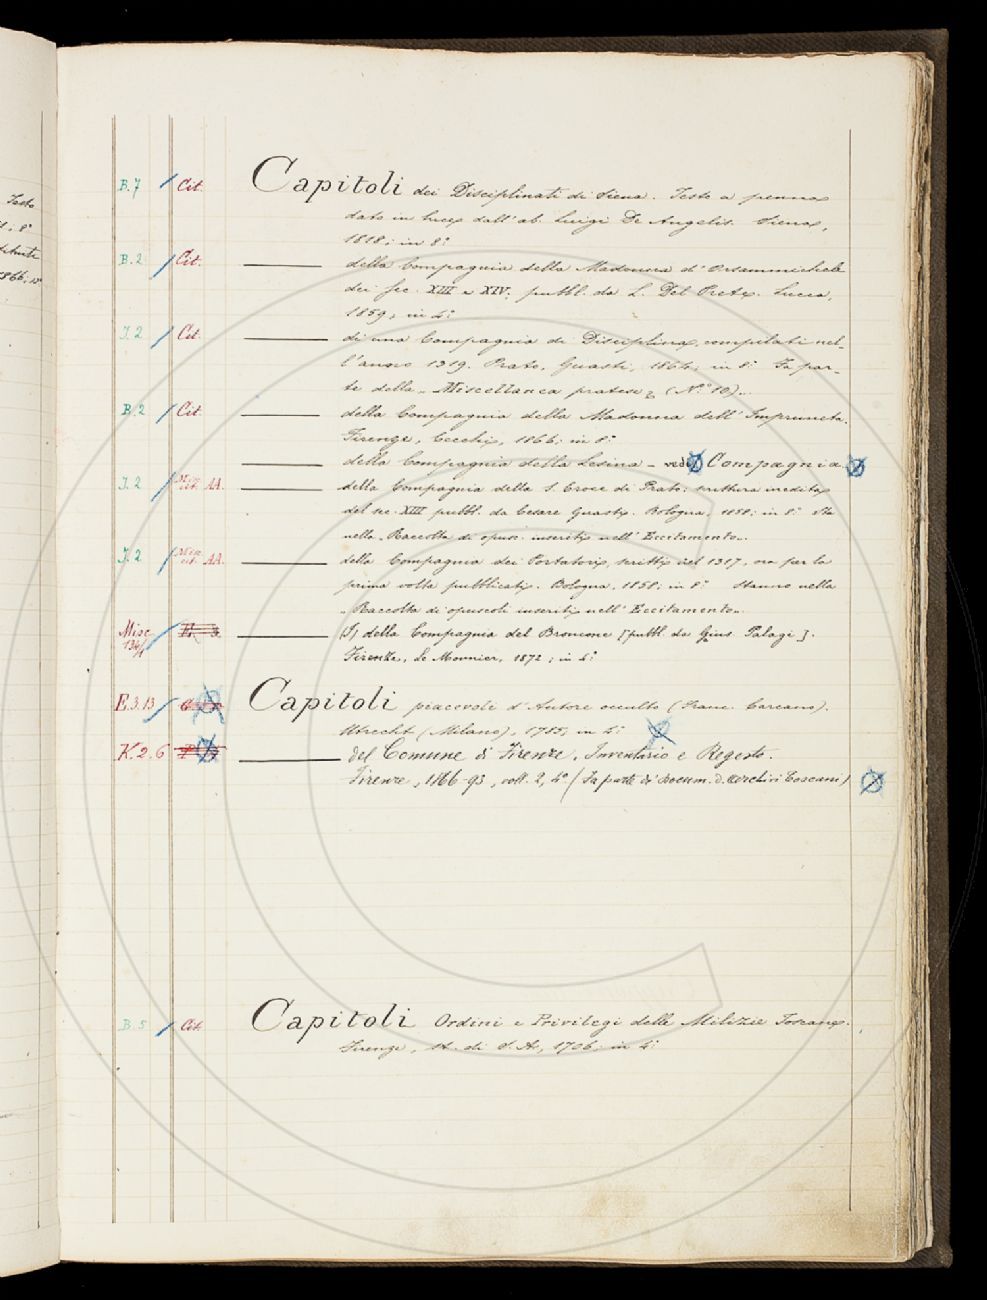 Testo
B. 7 Cit. Capitoli dei Disciplinati di Siena. Testo a penna
dato in luce dall' ab. Luigi De Angelis. Siena,
1818; in 8.°
B. 2 Cit. —— della Compagnia della Madonna d' Orsammichele
dei sec. XIII e XIV; pubbl. da L. Del Prete. Lucca,
1859; in 4.°
I. 2 Cit. —— di una Compagnia di Disciplina, compilati nel-
l' anno 1319. Prato, Guasti, 1864; in 8.° Fa par-
te della „ Miscellanea pratese „ (N.° 10).
B. 2 Cit. —— della Compagnia della Madonna dell' Impruneta.
Firenze, Cecchi, 1866; in 8.°
—— della Compagnia della Lesina - vedi Compagnia.
I. 2 Misc. cit. AA. —— della Compagnia della S. Croce di Prato: scrittura inedita
del sec. XIII pubbl. da Cesare Guasti. Bologna, 1858; in 8.° Sta
nella „ Raccolta di opusc. inseriti nell' Eccitamento „.
I. 2 Misc. cit. AA. —— della Compagnia dei Portatori, scritti nel 1317, ora per la
prima volta pubblicati. Bologna, 1858; in 8.° Stanno nella
„ Raccolta di opuscoli inseriti nell' Eccitamento „.
Misc. 134/1 —— (I) della Compagnia del Broncone [pubbl. da Gius. Palagi].
Firenze, Le Monnier, 1872; in 4.°
E. 3. 13 Capitoli piacevoli d' Autore occulto (Franc. Carcano).
Utrecht (Milano), 1785; in 4.°
K. 2. 6 —— del Comune di Firenze, Inventario e Regesto.
Firenze, 1866-93, voll. 2, 4.° (Fa parte di Docum. d. Archivi Toscani)
B. 5 Cit. Capitoli Ordini e Privilegi delle Milizie Toscane.
Firenze, St. di S. A., 1706; in 4.°